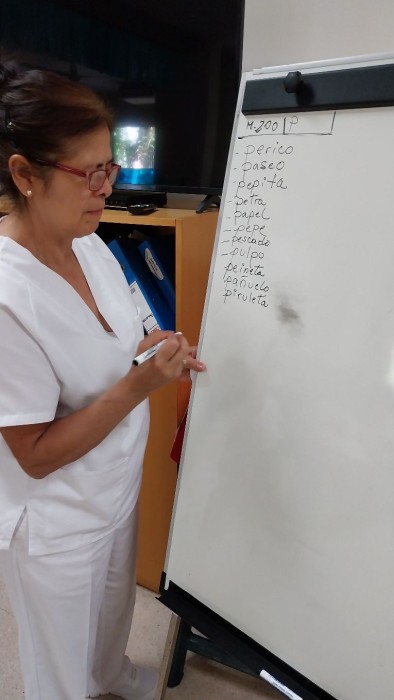 M-200 P
- perico
- paseo
- pepita
- petra
- papel
- pepe
- pescado
- pulpo
peineta
pañuelo
piruleta